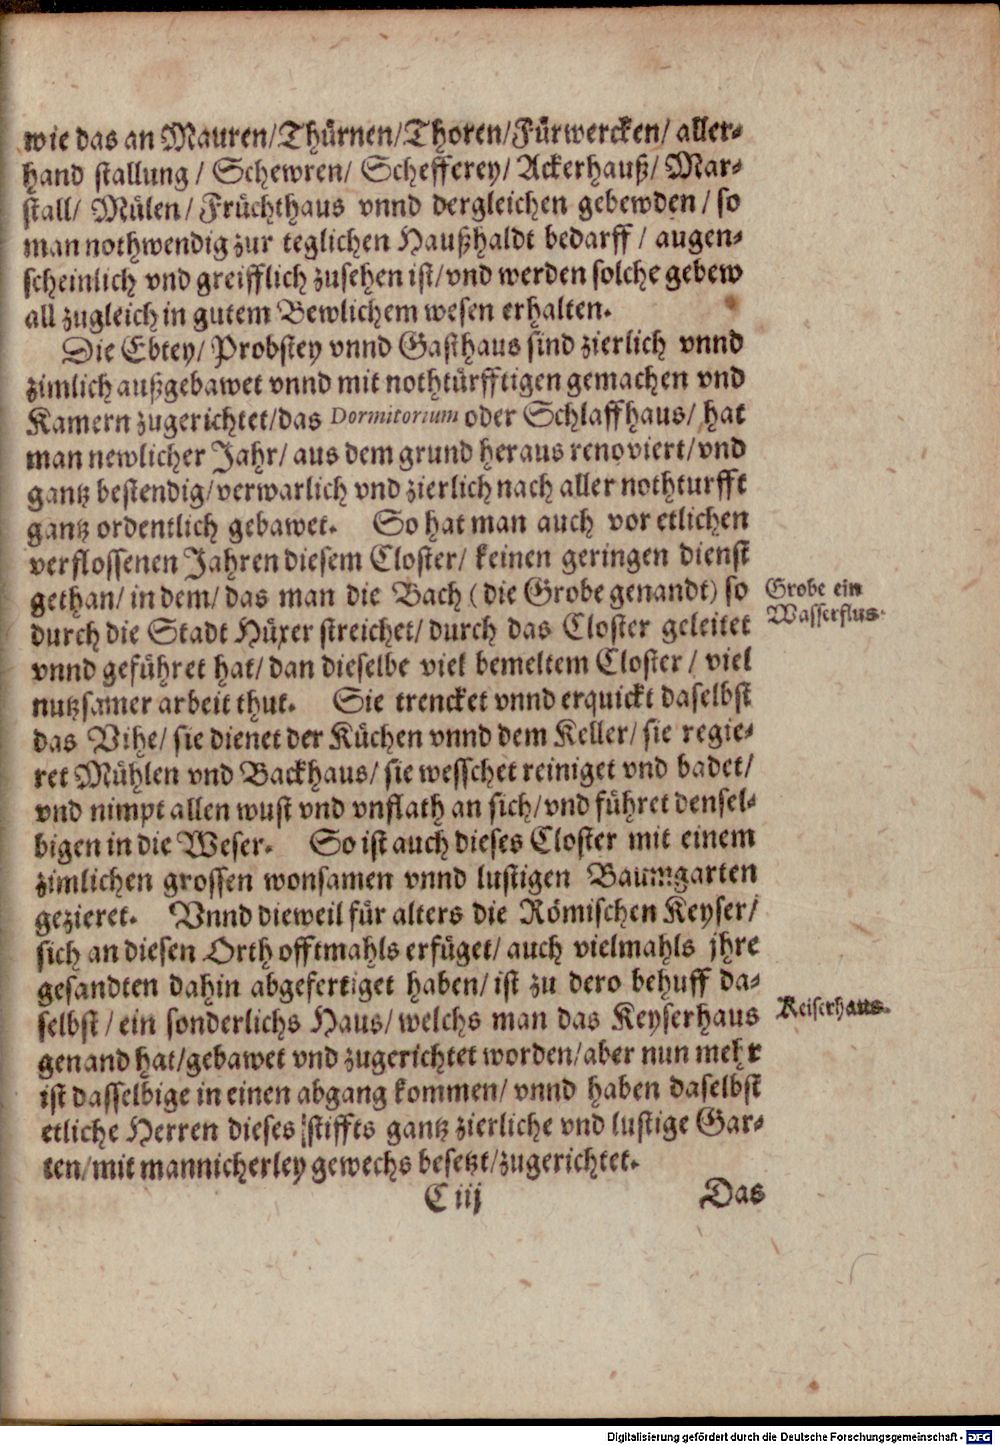 wie das an Mauren/Thürnen/Thoren/Fürwercken/ aller-
hand stallung / Schewren/ Schefferey/ Ackerhauß/ Mar-
stall/ Mülen/ Früchthaus vnnd dergleichen gebewden / so
man nothwendig zur teglichen Haußhaldt bedarff / augen-
scheinlich vnd greifflich zusehen ist/vnd werden solche gebew
all zugleich in gutem Bewlichem wesen erhalten.
Die Ebtey/ Probstey vnnd Gasthaus sind zierlich vnnd
zimlich außgebawet vnnd mit nothtürfftigen gemachen vnd
Kamern zugerichtet/das Dormitorium oder Schlaffhaus/ hat
man newlicher Jahr/ aus dem grund heraus renoviert/vnd
gantz bestendig/verwarlich vnd zierlich nach aller nothturfft
gantz ordentlich gebawet. So hat man auch vor etlichen
verflossenen Jahren diesem Closter/ keinen geringen dienst
gethan/ in dem/ das man die Bach (die Grobe genandt) so
Grobe ein
Wasserflus.
durch die Stadt Hüxer streichet/ durch das Closter geleitet
vnnd geführet hat/ dan dieselbe viel bemeltem Closter / viel
nutzsamer arbeit thut. Sie trencket vnnd erquickt daselbst
das Vihe/ sie dienet der Küchen vnnd dem Keller/ sie regie-
ret Mühlen vnd Backhaus/ sie wesschet reiniget vnd badet/
vnd nimpt allen wust vnd vnflath an sich/vnd führet densel-
bigen in die Weser. So ist auch dieses Closter mit einem
zimlichen grossen wonsamen vnnd lustigen Baumgarten
gezieret. Vnnd dieweil für alters die Römischen Keyser/
sich an diesen Orth offtmahls erfüget/ auch vielmahls jhre
gesandten dahin abgefertiget haben/ ist zu dero behuff da-
selbst / ein sonderlichs Haus/ welchs man das Keyserhaus
Keiserhaus.
genand hat/gebawet vnd zugerichtet worden/aber nun mehr
ist dasselbige in einen abgang kommen/ vnnd haben daselbst
etliche Herren dieses stiffts gantz zierliche vnd lustige Gar-
ten/mit mannicherley gewechs besetzt/zugerichtet.
C iij
Das
Digitalisierung gefördert durch die Deutsche Forschungsgemeinschaft - DFG